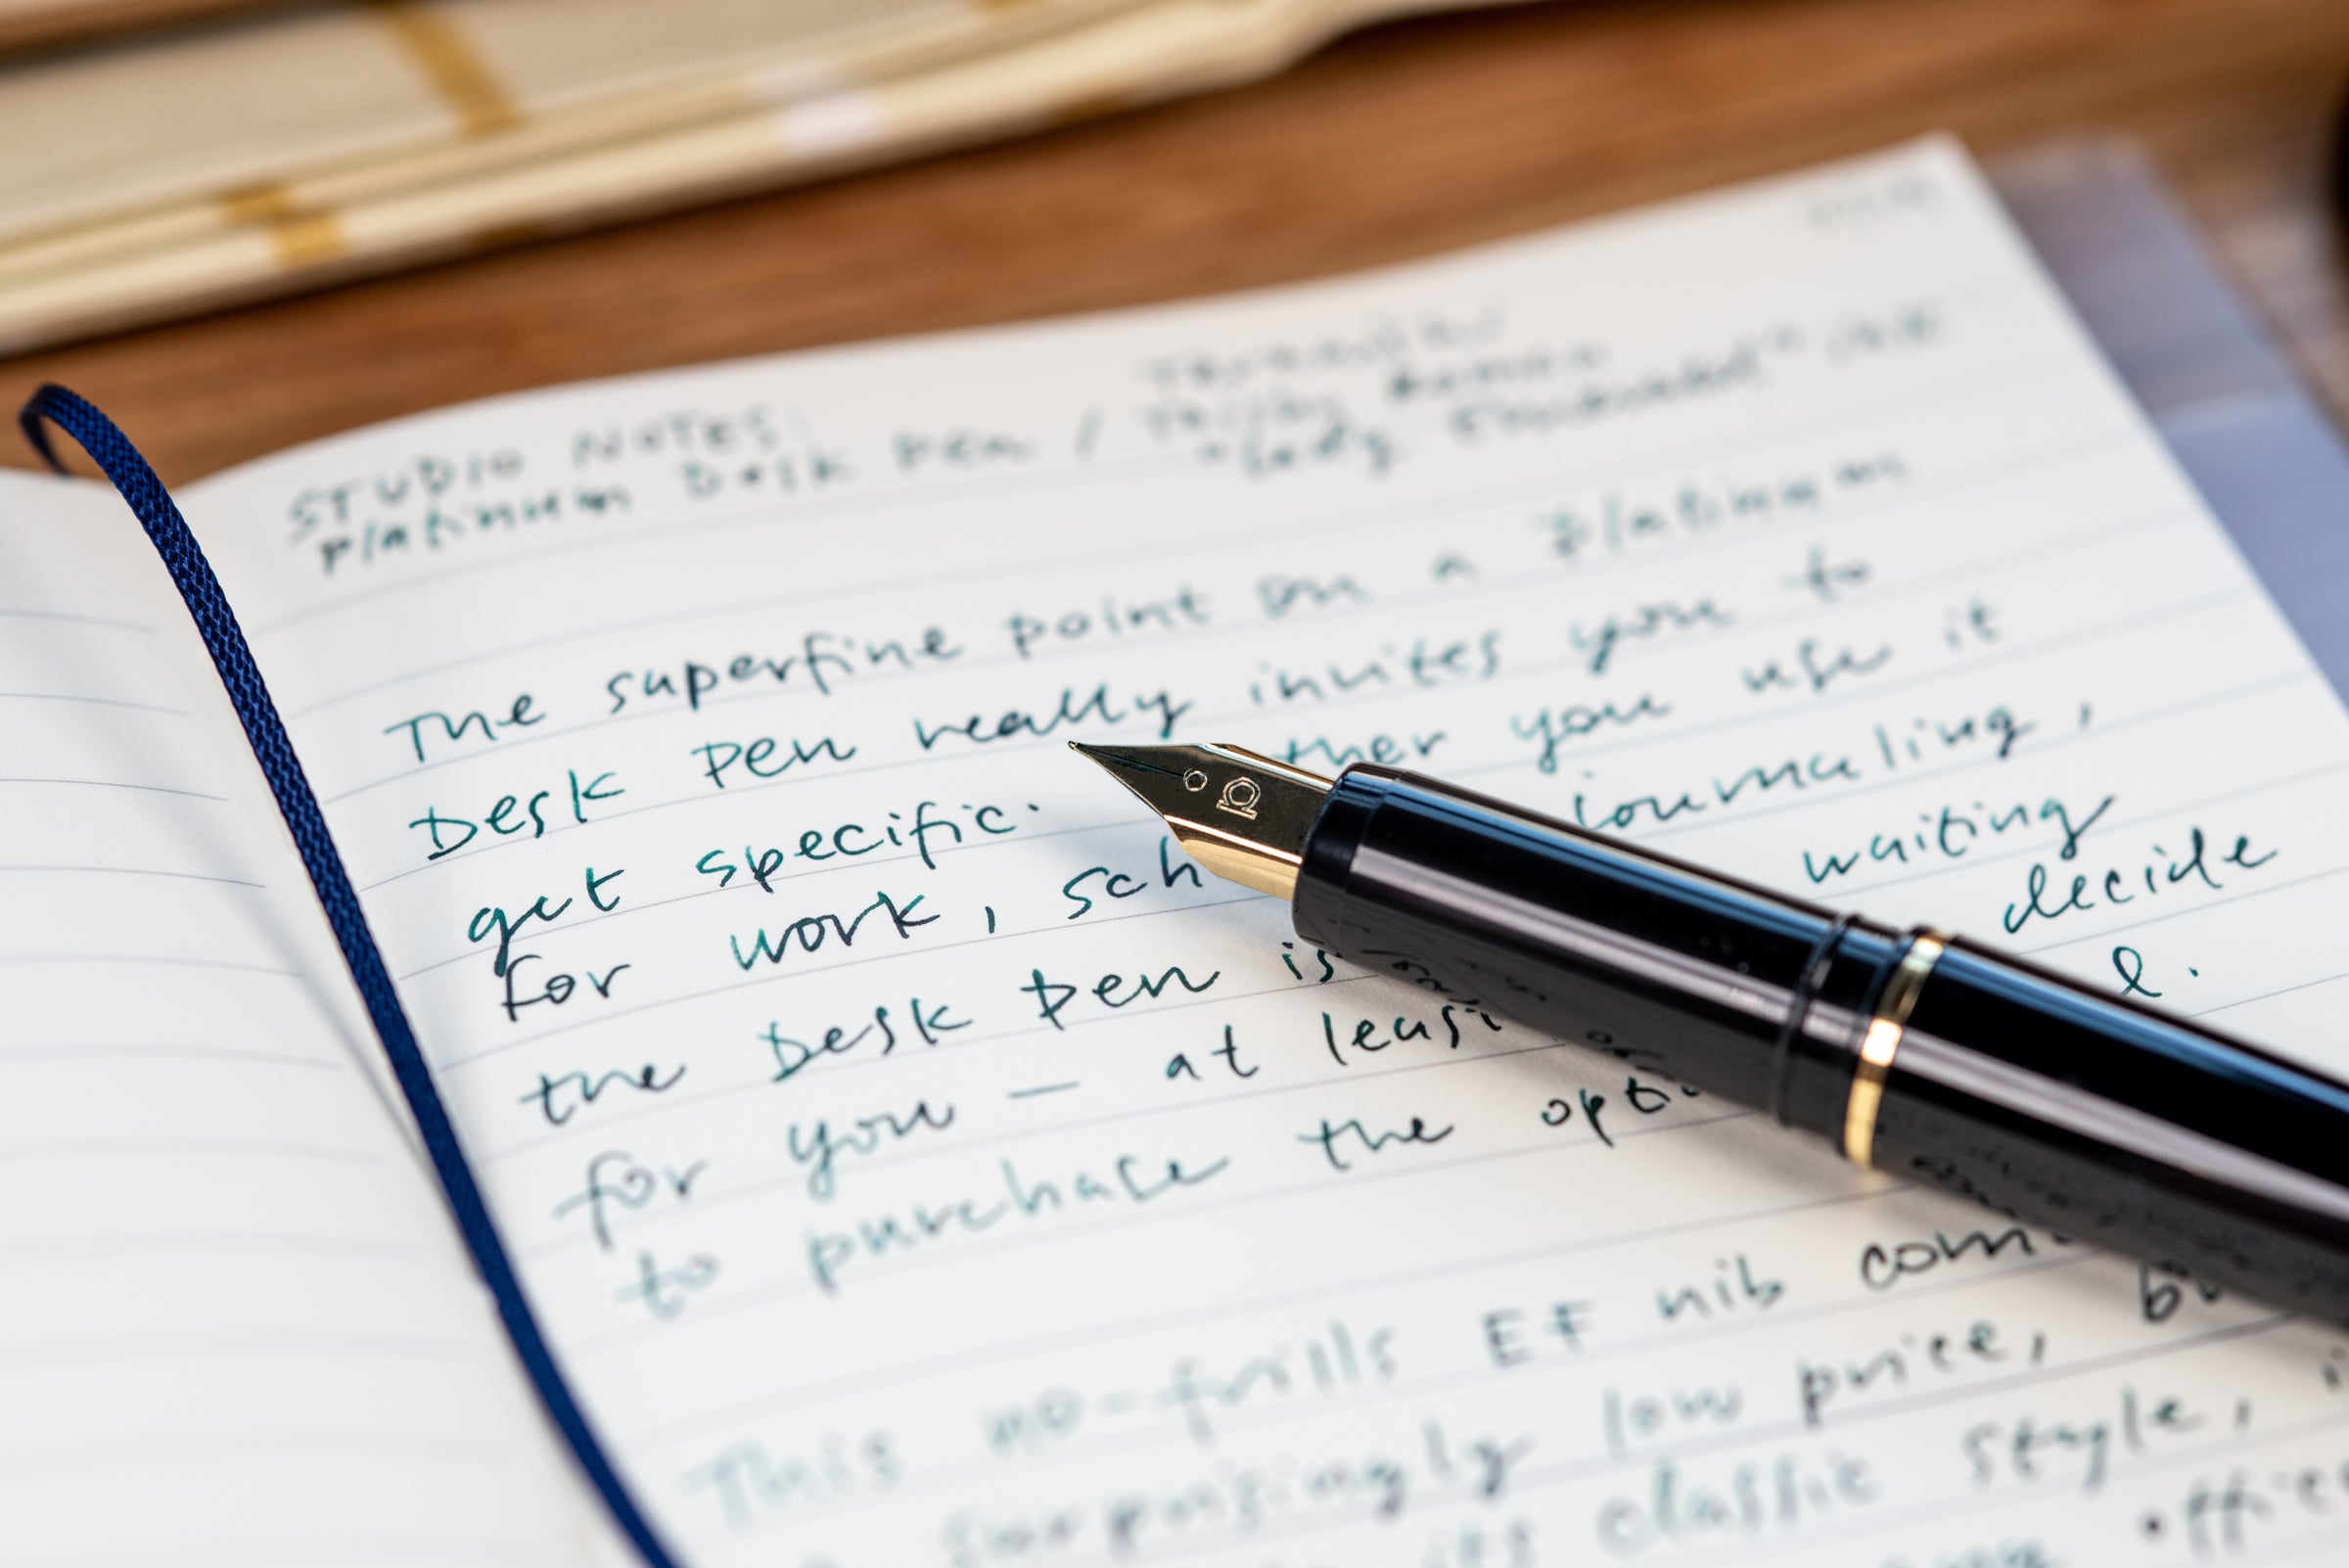 STUDIO NOTES:
Platinum Desk Pen / "Lady Emerald" ink
The superfine point on a Platinum
Desk Pen really invites you to
get specific. ther you use it
for work, sch journaling,
the Desk Pen is waiting
for you — at least decide
to purchase the opti l.
This no-frills EF nib com
surprisingly low price, bu
its classic style, i
office